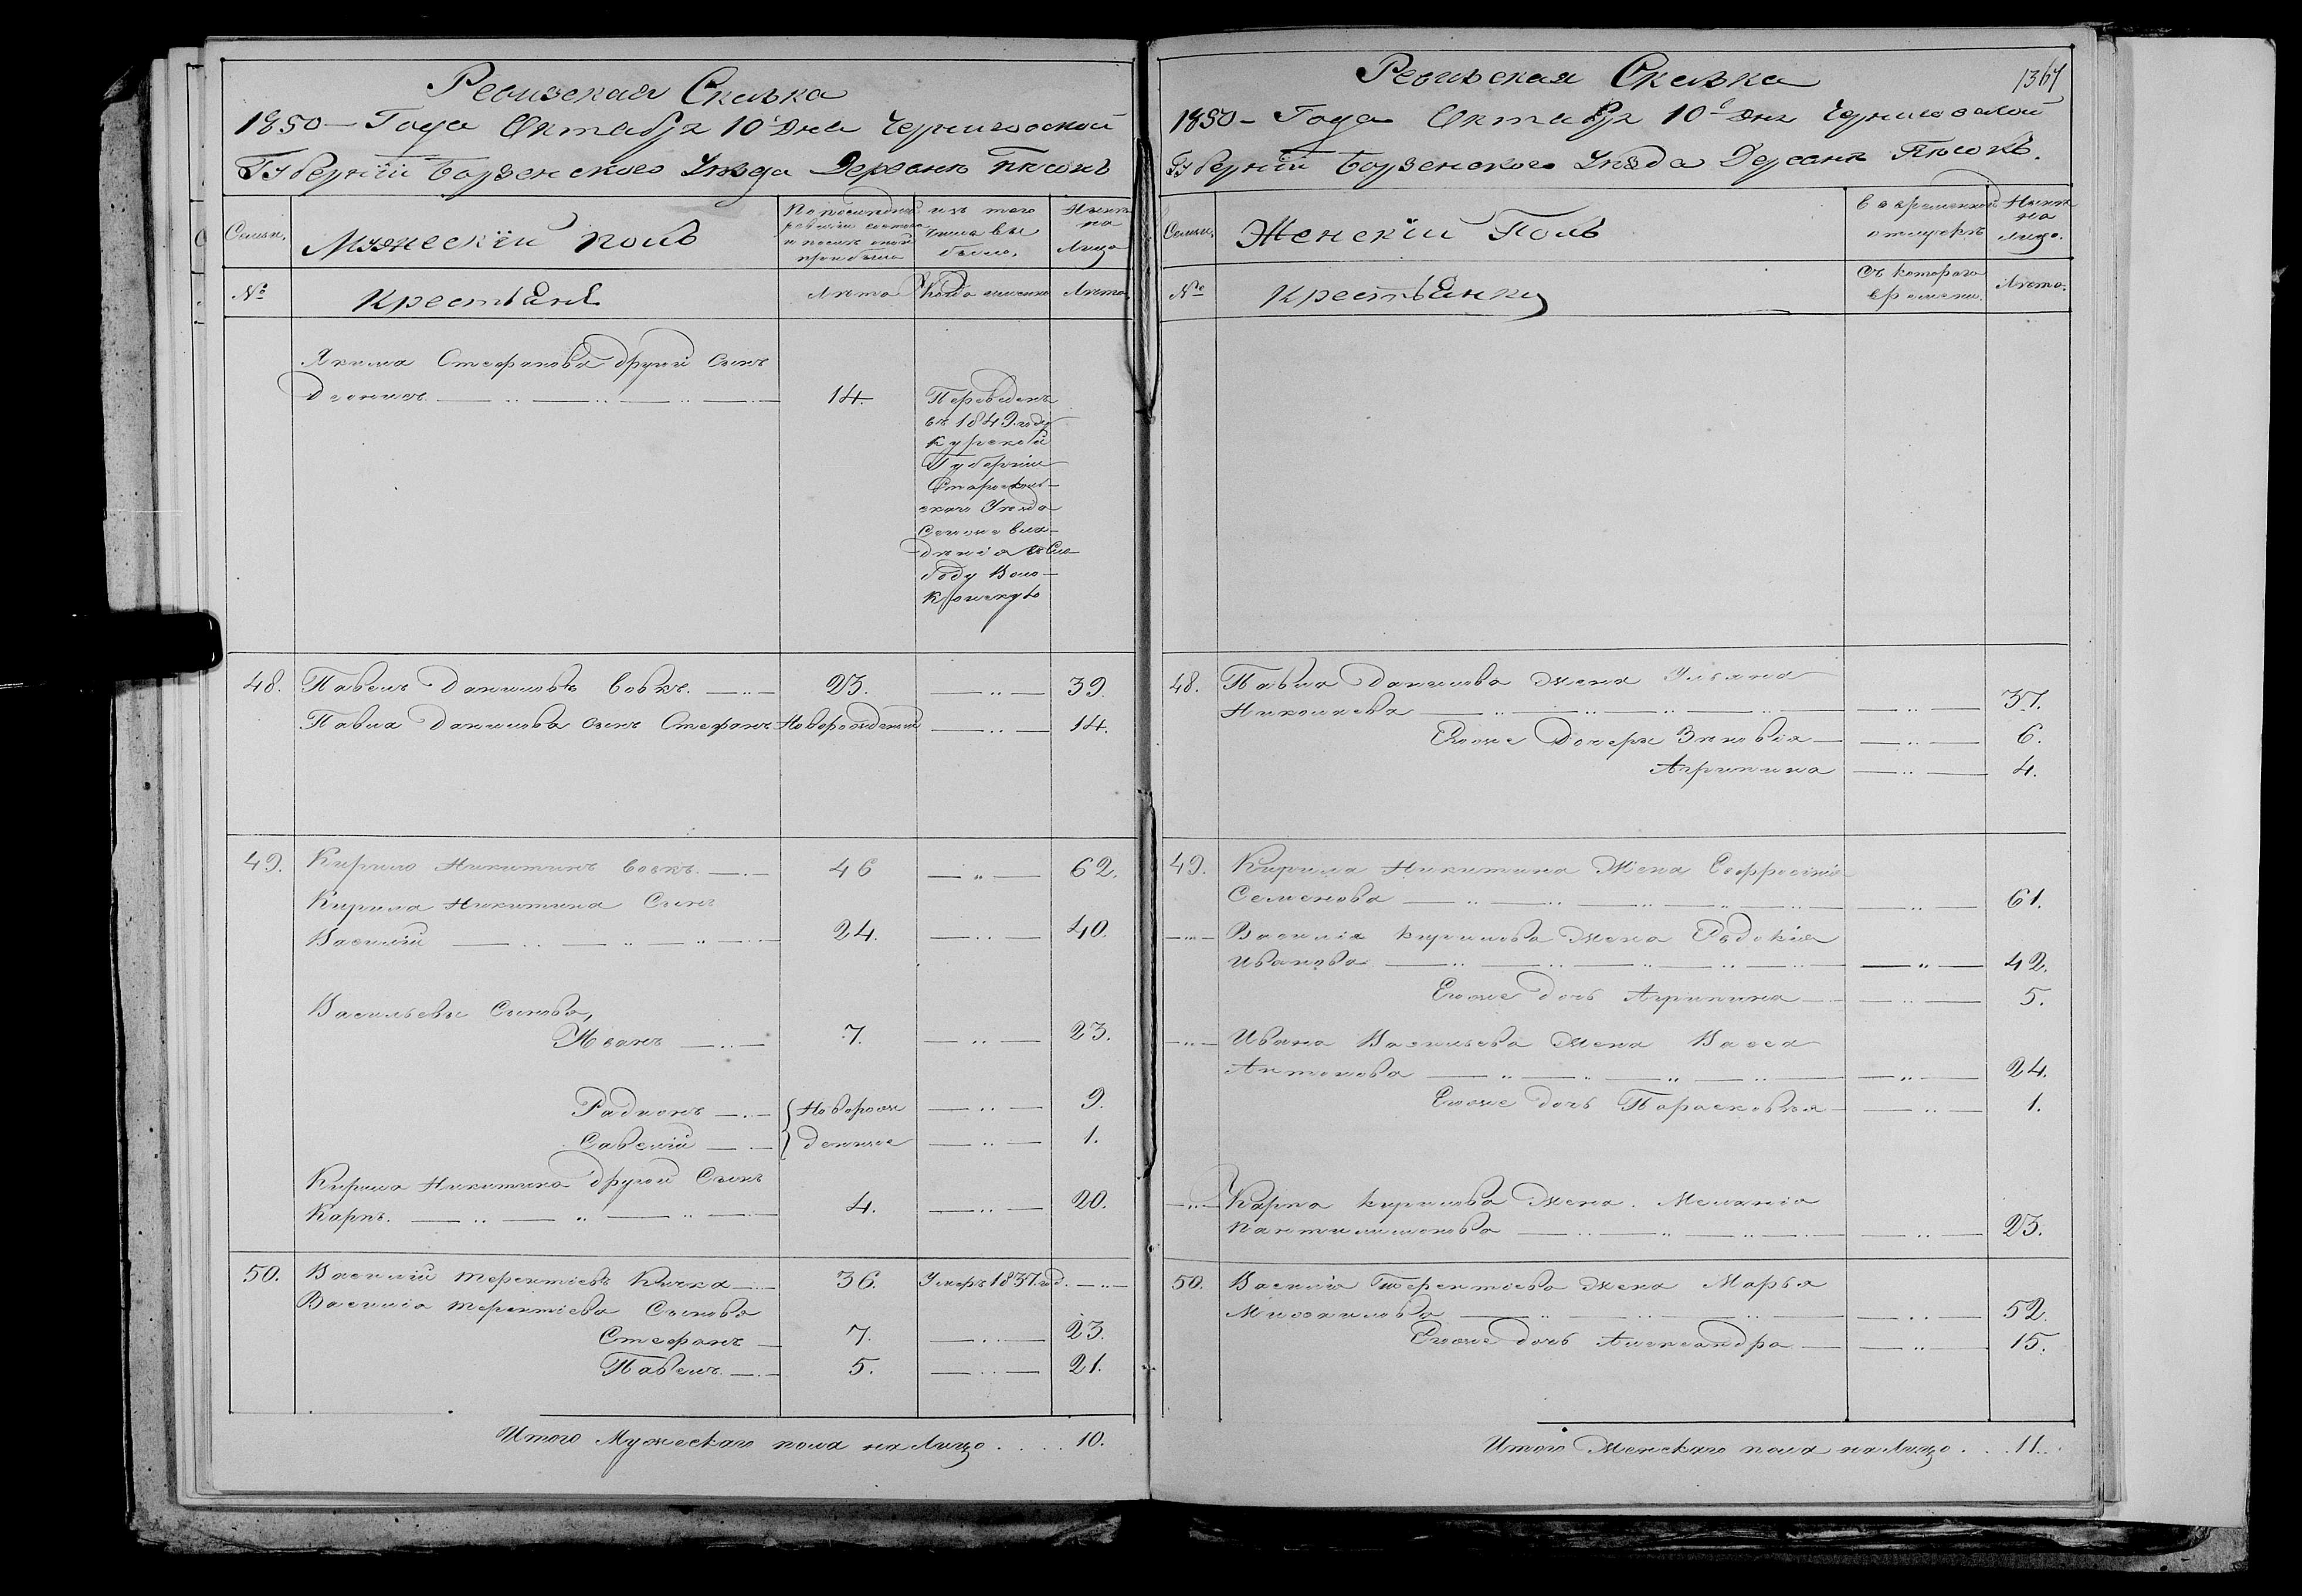 Ревизская Сказка
1850 – Года Октября 10 Дня Черниговской
Губерніи Борзенского Уѣзда Деревни Пѣсокъ
Семьи.
Мужескій полъ
По последней
ревизіи состояло
и после оной
прибыло
изъ того
числа вы
было.
Нынѣ
на
Лицо
№
Крестьяне
Лѣта
Когда именно
Лѣта
Якима Стефанова другій Сынъ
14.
Переведенъ
въ 1849. году
Курской
Губерніи
Старооскол-
скаго Уѣзда
владѣнія въ Сло-
боду
48. Павелъ Даниловъ Вовкъ. 23. 39.
Павла Данилова сынъ Стефанъ Новорожденный 14.
49. Кирило Никитинъ Вовкъ. 46 62.
Кирила Никитина Сынъ
Василій 24. 40.
Васильевы Сыновья,
Иванъ 7. 23.
Радионъ Новорож 9.
Савелій денные 1.
Кирила Никитина другой Сынъ
Карпъ. 4. 20.
50. Василій Терентіевъ 36. Умеръ 1837 год.
Василія Терентіева Сыновья
Стефанъ 7. 23.
Павелъ 5. 21.
Итого Мужескаго пола на Лицо . . . . 10.
Ревизская Сказка
1367
1850 – Года Октября 10 Дня Черниговской
Губерніи Борзенского Уѣзда Деревни Пѣсокъ.
Семьи.
Женскій Полъ
во временной
отлучкѣ
Нынѣ
на
Лицо.
№
Крестьянки
Съ котораго
времени.
Лѣта.
48. Павла Данилова жена Ульяна
Николаева 37.
Егоже Дочери Зиновія 6.
Агрипина 4.
49. Кирила Никитина Жена Евфросинія
Семенова 61.
Василія Кирилова жена Евдокія
Иванова 42.
Егоже дочь Агрипина 5.
Ивана Васильева жена Васса
Антонова 24.
Егоже дочь Парасковья 1.
Карпа Кирилова жена. Меланія
Пантилимонова 23.
50. Василія Терентіева жена Марья
Михаилова 52.
Егоже дочь Александра 15.
Итого Женскаго пола на Лицо . . . 11.